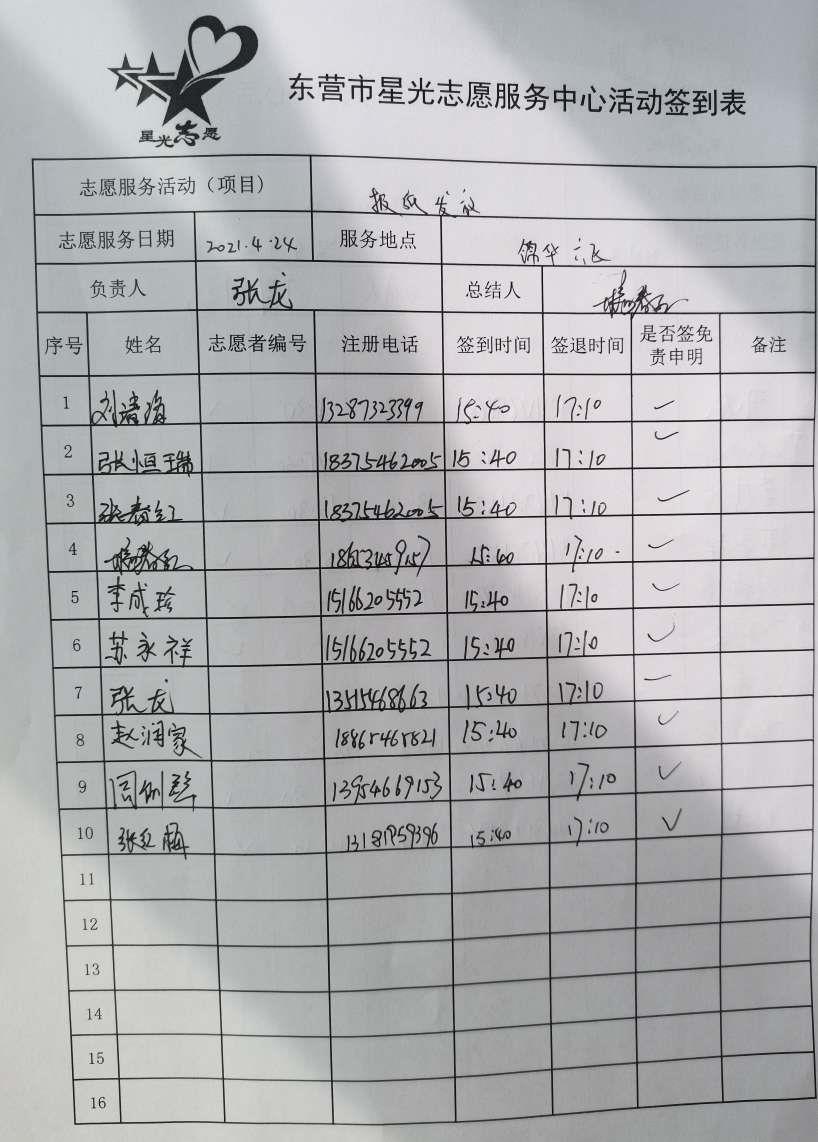 星光志愿
东营市星光志愿服务中心活动签到表
志愿服务活动（项目） 报纸发放
志愿服务日期 2021.4.24 服务地点 锦华六区
负责人 张龙 总结人
序号 姓名 志愿者编号 注册电话 签到时间 签退时间 是否签免责申明 备注
1 13287323399 15:40 17:10 ✓
2 张恒瑞 18375462005 15:40 17:10 ✓
3 张春红 18375462005 15:40 17:10 ✓
4 15:40 17:10 ✓
5 李成珍 15166205552 15:40 17:10 ✓
6 苏永祥 15166205552 15:40 17:10 ✓
7 张龙 13515468663 15:40 17:10 ✓
8 赵润家 18865465821 15:40 17:10 ✓
9 13954669153 15:40 17:10 ✓
10 张红梅 15:40 17:10 ✓
11
12
13
14
15
16